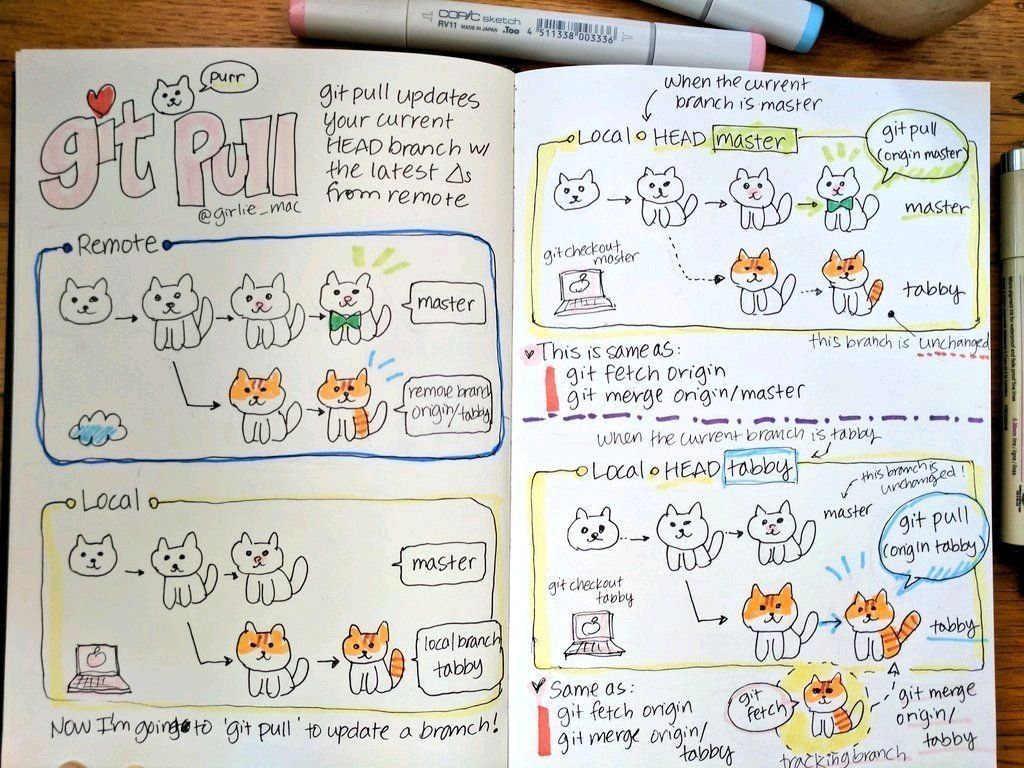 COPIC sketch
RV11 MADE IN JAPAN .Too 4 511338 003336
purr
git pull
@girlie_mac
git pull updates
your current
HEAD branch w/
the latest Δs
from remote
Remote
master
remove branch
origin/tabby
Local
master
local branch
tabby
Now I'm going to 'git pull' to update a branch!
When the current
branch is master
Local HEAD master
git pull
(origin master)
master
git checkout
master
tabby
this branch is unchanged
This is same as:
git fetch origin
git merge origin/master
When the current branch is tabby
Local HEAD tabby
this branch is
unchanged!
master
git pull
(origin tabby)
git checkout
tabby
tabby
Same as:
git fetch origin
git merge origin/
tabby
git
fetch
git merge
origin/
tabby
tracking branch